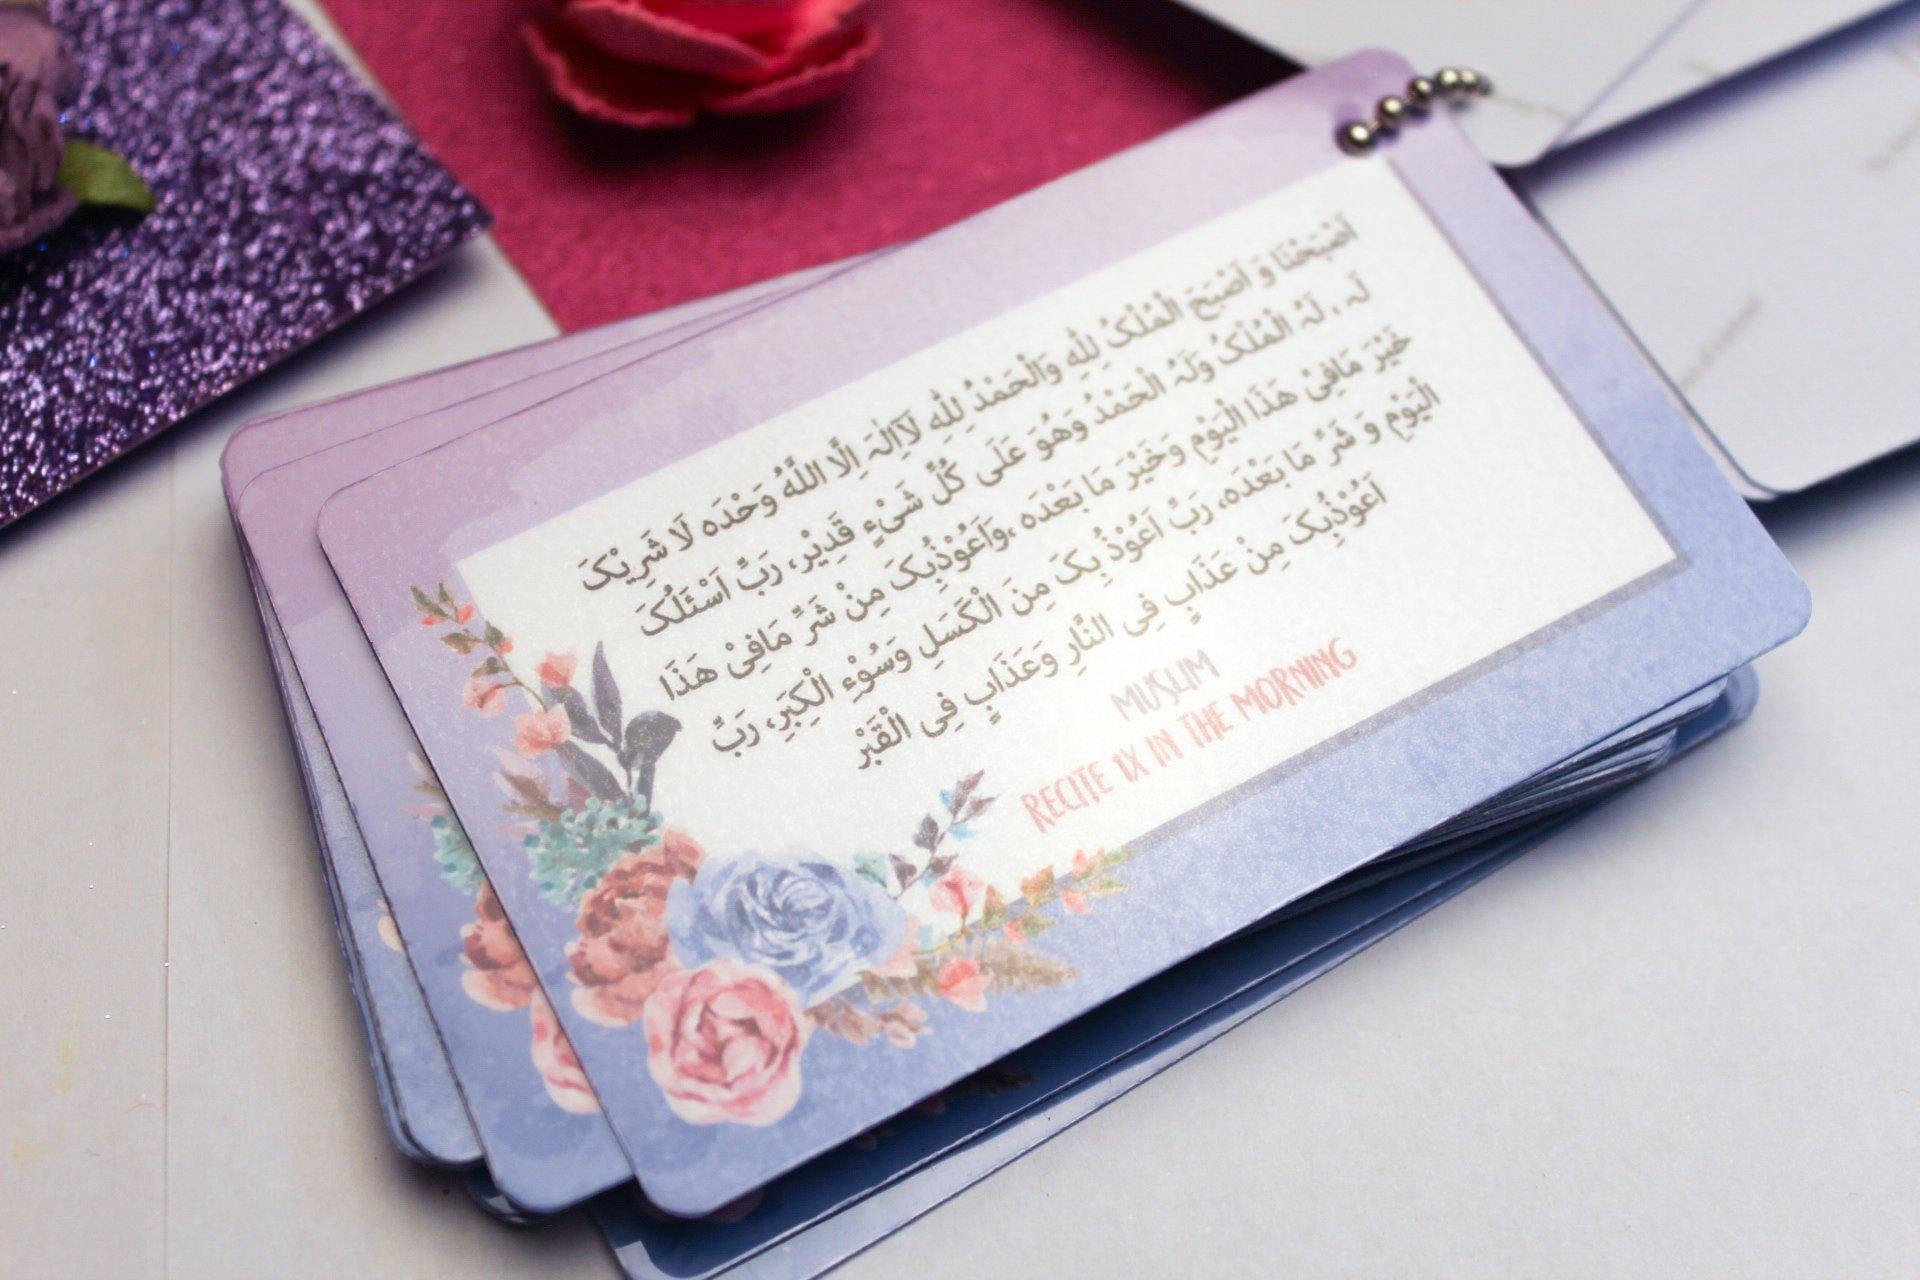 اَصْبَحْنَا وَ اَصْبَحَ الْمُلْکُ لِلّٰهِ وَالْحَمْدُ لِلّٰهِ لَآاِلٰہَ اِلَّا اللّٰهُ وَحْدَہ لَا شَرِیْکَ
لَہ . . لَہُ الْمُلْکُ وَلَہُ الْحَمْدُ وَهُوَ عَلَى كُلِّ شَیْءٍ قَدِیْر، رَبِّ اَسْئَلُکَ
خَیْرَ مَافِیْ هَذَا الْیَوْمِ وَخَیْرَ مَا بَعْدَہ ،وَاَعُوْذُبِکَ مِنْ شَرِّ مَافِیْ هَذَا
الْیَوْمِ وَ شَرِّ مَا بَعْدَہ، رَبِّ اَعُوْذُ بِکَ مِنَ الْکَسَلِ وَسُوْءِ الْکِبَرِ، رَبِّ
اَعُوْذُبِکَ مِنْ عَذَابٍ فِی النَّارِ وَعَذَابٍ فِی الْقَبْر
MUSLIM
RECITE 1X IN THE MORNING